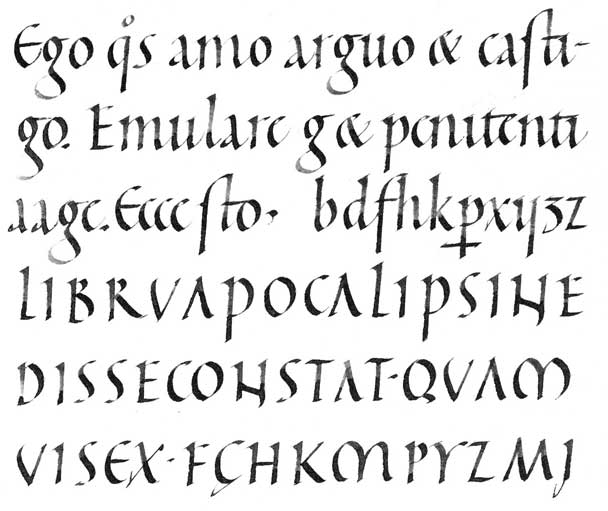 Ego qͦs amo arguo & casti-
go. Emulare g& penitenti
aage. Ecce sto, bdfhkꝑxyʒz
LIBRVAPOCALIPSINE
DISSECONSTAT·QVAM
VISEX·FGHKMPYZMJ